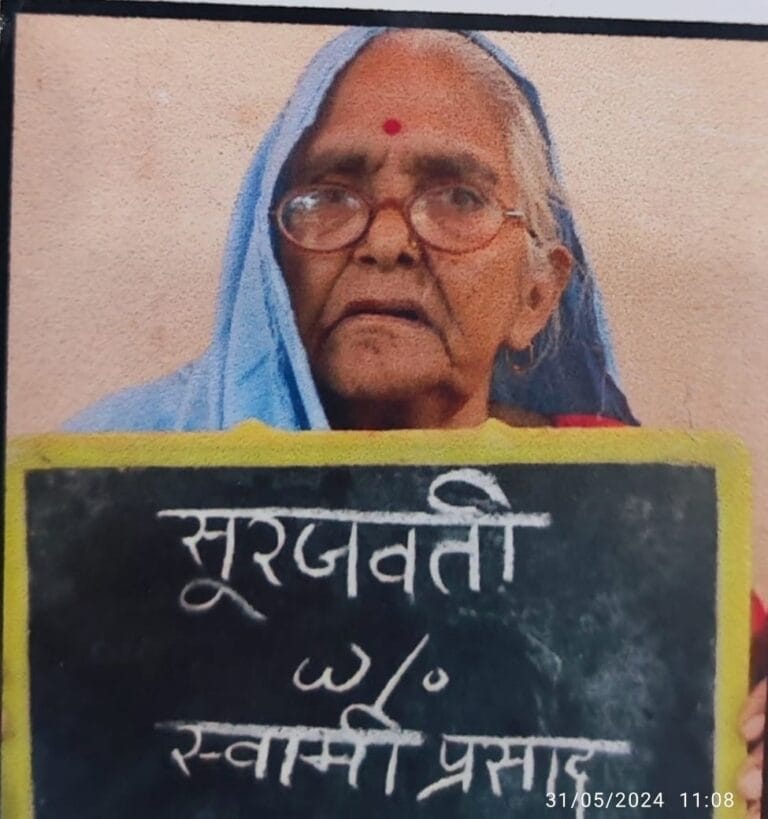 सूरजवती
w/०
स्वामी प्रसाद
31/05/2024 11:08